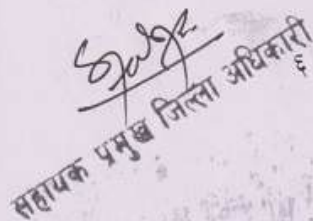 सहायक प्रमुख जिल्ला अधिकारी
६